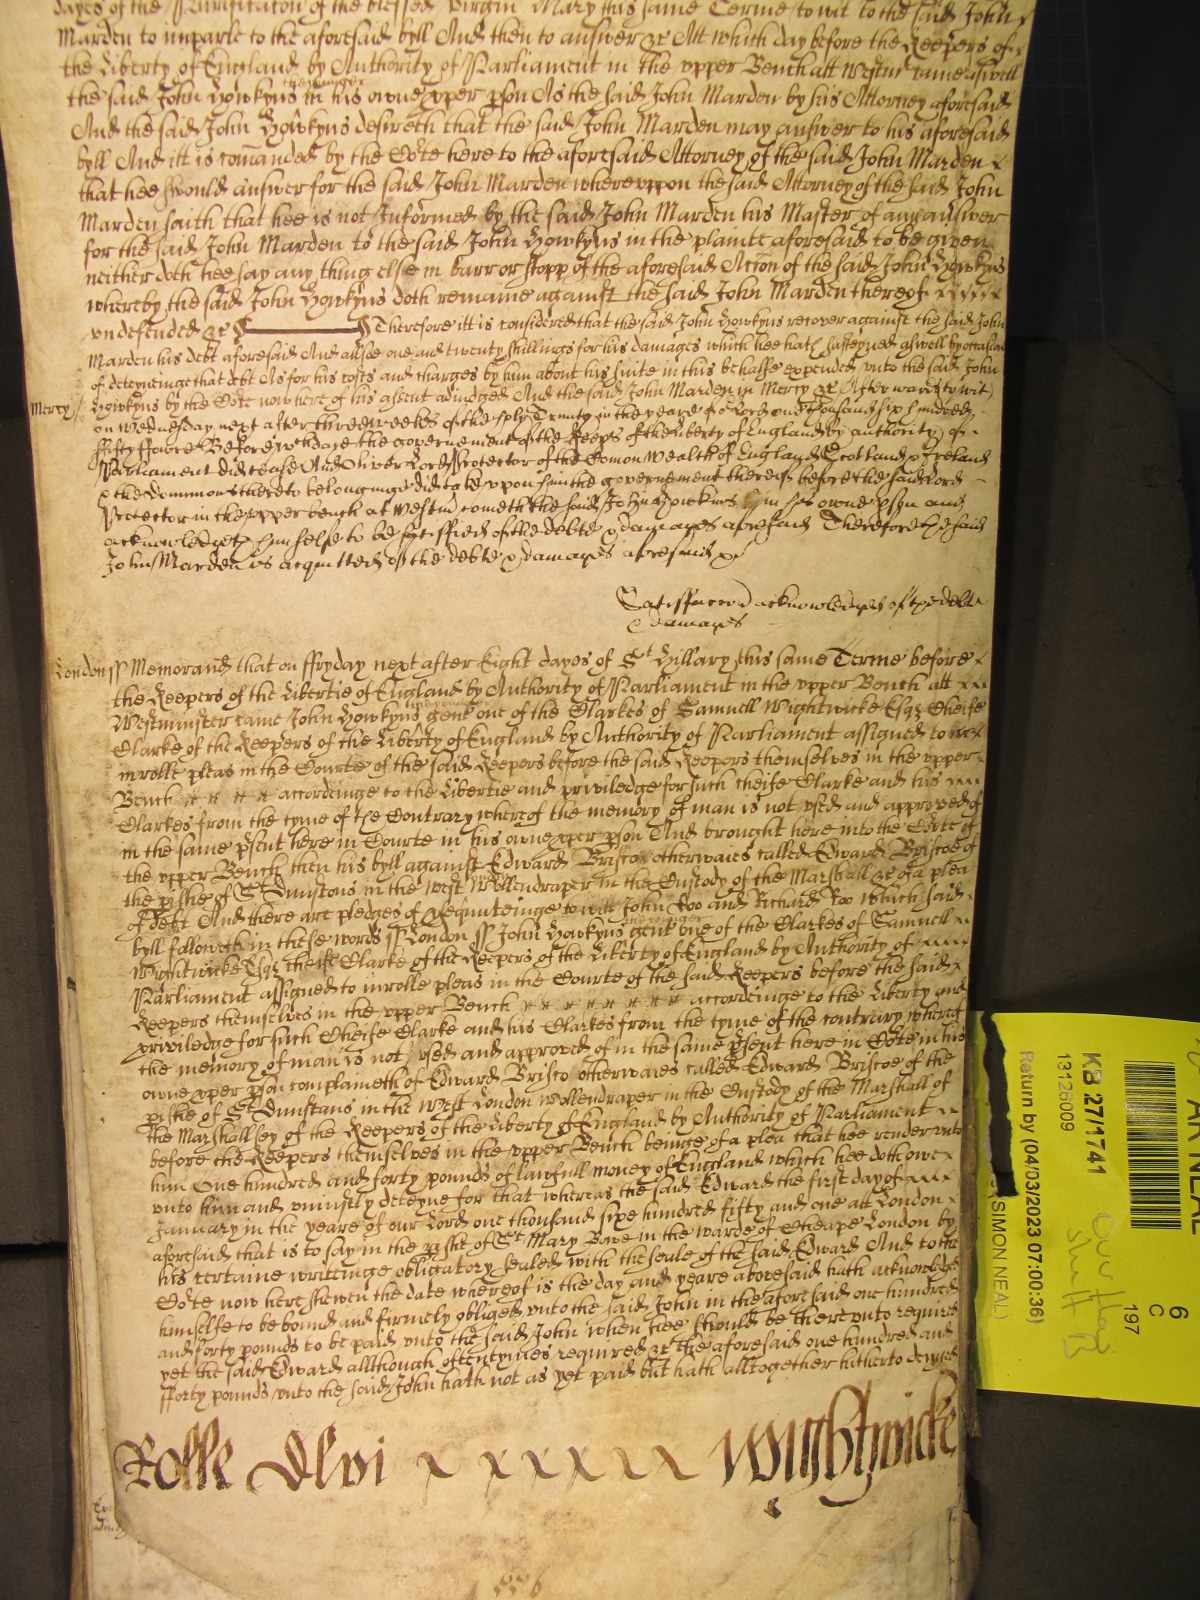 dayes of the Purificacon of the blessed Virgin Mary this same Terme to wit to the said John
Marden to imparle to the aforesaid byll And then to answer &c Att which day before the Keepers of
the Liberty of England by Authority of Parliament in the upper Bench att Westmr came aswell
the said John Howkyns the younger in his owne pper pson As the said John Marden by his Attorney aforesaid
And the said John Howkyns desireth that the said John Marden may answer to his aforesaid
byll And itt is comanded by the Corte here to the aforesaid Attorney of the said John Marden
that hee should answer for the said John Marden whereuppon the said Attorney of the said John
Marden saith that hee is not Informed by the said John Marden his Master of any answer
for the said John Marden to the said John Howkyns in the plainte aforesaid to be given
neither doth hee say any thing else in barr or stopp of the aforesaid Accon of the said John Howkyns
whereby the said John Howkyns doth remaine against the said John Marden thereof
undefended &c Therefore itt is considered that the said John Howkyns recover against the said John
Marden his debt aforesaid And allsoe one and twenty shillings for his damages which hee hath susteyned aswell by occasion
of deteyneinge that debt As for his costs and charges by him about his suite in this behalfe expended unto the said John
Mercy Howkyns by the Corte now here of his assent adiudged And the said John Marden in Mercy &c Afterwards to wit
on Wednesday next after three weekes of the holy Trinity in the yeare of or Lord one thousand six hundred
fifty fower Before wch daye the governement of the Keeps of the Liberty of England by authority of
Parliament did cease And Oliver Lord Protector of the Comon Wealth of England Scotland & Ireland
& the dominions thereto belonginge did take upon him the governement thereof before the said Lord
Protector in the upper bench at Westmr cometh the said John Howkins in his owne pson and
acknowledgeth himselfe to be satisfied of the debte & damages aforesaid Therefore the said
John Marden is acquitted of the debte & damages aforesaid &c
Satisfaccon acknowledged of the debte
& damages
London ss Memorand that on ffryday next after Eight dayes of St Hillary this same Terme before
the Keepers of the Libertie of England by Authority of Parliament in the upper Bench att
Westminster came John Howkyns the younger gent one of the Clarkes of Samuell Wightwicke Esqr Cheife
Clarke of the Keepers of the Liberty of England by Authority of Parliament assigned to
inrolle pleas in the Courte of the said Keepers before the said Keepers themselves in the upper
Bench accordinge to the Libertie and priviledge for such cheife Clarke and his
Clarkes from the tyme of the Contrary whereof the memory of man is not used and approved of
in the same psent here in Courte in his owne pper pson And brought here into the Corte of
the upper Bench then his byll against Edward Brisco otherwaies called Edward Briscoe of
the pishe of St Dunstons in the West Wollendraper in the Custody of the Marshall &c of a plea
of debt And there are pledges of psequuteinge to witt John Doo and Richard Roo Which said
byll followeth in these words ss London ss John Howkyns the younger gent one of the Clarkes of Samuell
Wightwicke Esqr cheife Clarke of the Keepers of the Liberty of England by Authority of
Parliament assigned to inrolle pleas in the Courte of the said Keepers before the said
Keepers themselves in the upper Bench accordeinge to the Liberty and
priviledge for such Cheife Clarke and his Clarkes from the tyme of the contrary whereof
the memory of man is not used and approved of in the same psent here in Corte in his
owne pper pson complaineth of Edward Brisco otherwaies called Edward Briscoe of the
pishe of St Dunstans in the West London Wollendraper in the Custody of the Marshall of
the Marshallsey of the Keepers of the Liberty of England by Authority of Parliament
before the Keepers themselves in the upper Bench beinge of a plea that hee render unto
him One hundred and forty pounds of lawfull money of England which hee doth owe
unto him and uniustly deteyne for that whereas the said Edward the first day of
January in the yeare of our Lord one thousand sixe hundred fifty and one att London
aforesaid that is to say in the pishe of St Mary Bowe in the warde of Cheape London by
his certaine writtinge obligatory sealed with the seale of the said Edward And to the
Corte now here shewen the date whereof is the day and yeare abovesaid hath acknowledged
himselfe to be bound and firmely obliged unto the said John in the aforesaid one hundred
and forty pounds to be paid unto the said John when hee should be thereunto required
yet the said Edward allthough oftentymes required &c the aforesaid one hundred and
fforty pounds unto the said John hath not as yet paid but hath alltogether hitherto denyed
Rolle Dlvi Wightwicke
556
AR NEAL
6
C
197
KB 27/1741
13126009
Return by (04/03/2023 07:00:36)
(SIMON NEAL)